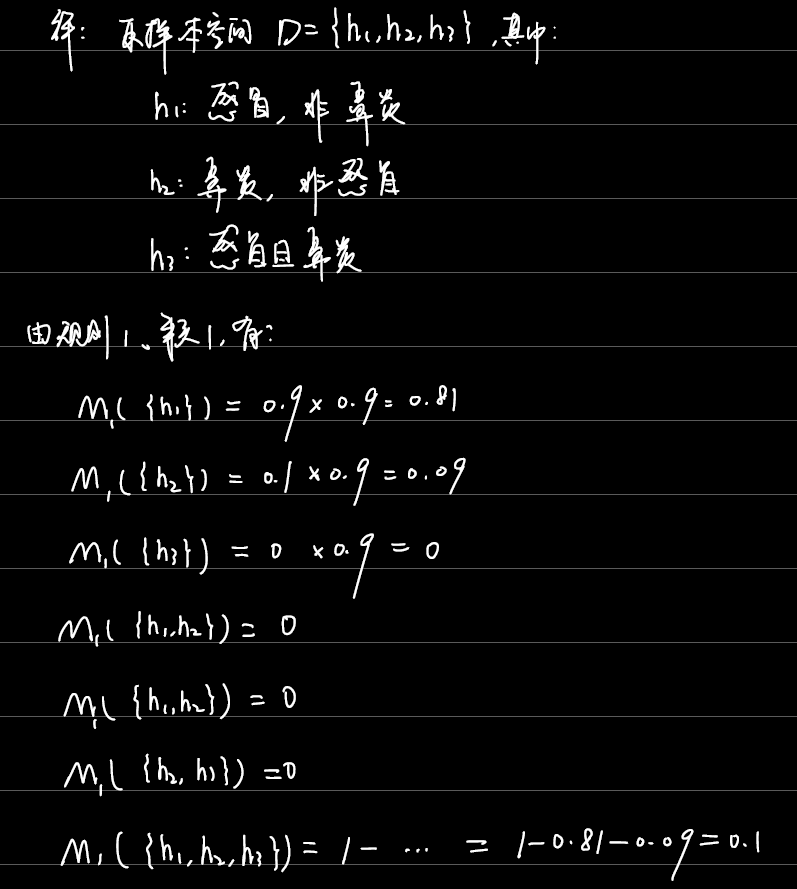 解: 取样本空间 D={h₁,h₂,h₃},其中:
h₁: 感冒, 非鼻炎
h₂: 鼻炎, 非感冒
h₃: 感冒且鼻炎
由规则1、事实1,有:
M₁( {h₁}) = 0.9 × 0.9 = 0.81
M₁({h₂}) = 0.1 × 0.9 = 0.09
M₁( {h₃}) = 0 × 0.9 = 0
M₁( {h₁,h₂}) = 0
M₁( {h₁,h₂}) = 0
M₁( {h₂, h₃}) = 0
M₁( {h₁,h₂,h₃}) = 1 - ... = 1-0.81-0.09=0.1